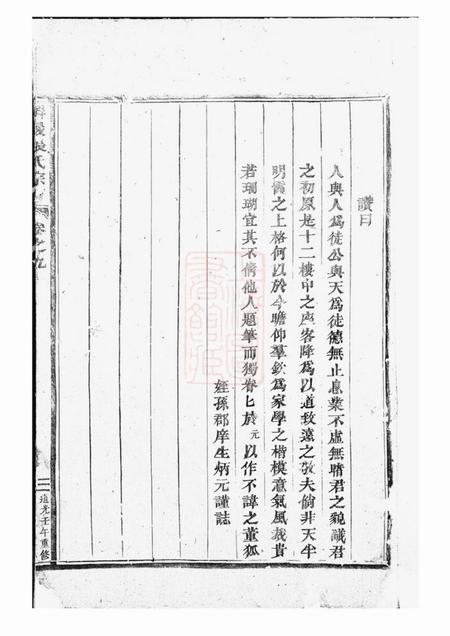 讚曰
人與人爲徒公與天爲徒德無止息業不虛無睹君之貌識君
之初原是十二樓中之座客降爲以道致遠之敬夫倘非天半
明霞之上格何以於今瞻仰羣欽爲家學之楷模意氣風裁貴
若珊瑚宜其不倩他人題筆而獨眷匕於元以作不諱之董狐
姪孫郡庠生炳元謹誌
氏宗
卷之九
道光壬午重修